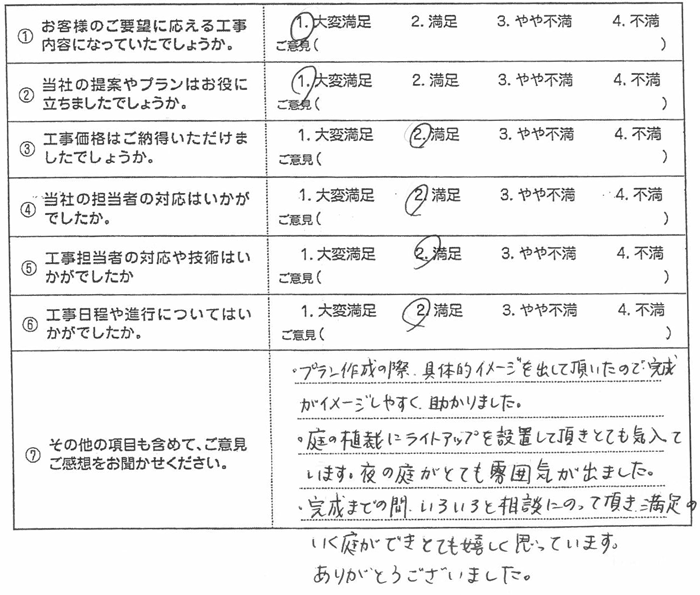 ① お客様のご要望に応える工事 1. 大変満足 2. 満足 3. やや不満 4. 不満
内容になっていたでしょうか。 ご意見( )
② 当社の提案やプランはお役に 1. 大変満足 2. 満足 3. やや不満 4. 不満
立ちましたでしょうか。 ご意見( )
③ 工事価格はご納得いただけま 1. 大変満足 2. 満足 3. やや不満 4. 不満
したでしょうか。 ご意見( )
④ 当社の担当者の対応はいかが 1. 大変満足 2. 満足 3. やや不満 4. 不満
でしたか。 ご意見( )
⑤ 工事担当者の対応や技術はい 1. 大変満足 2. 満足 3. やや不満 4. 不満
かがでしたか ご意見( )
⑥ 工事日程や進行についてはい 1. 大変満足 2. 満足 3. やや不満 4. 不満
かがでしたか。 ご意見( )
⑦ その他の項目も含めて、ご意見
ご感想をお聞かせください。
・プラン作成の際、具体的イメージを出して頂いたので完成
がイメージしやすく、助かりました。
・庭の植栽にライトアップを設置して頂きとても気入って
います。夜の庭がとても雰囲気が出ました。
・完成までの間、いろいろと相談にのって頂き、満足の
いく庭ができとても嬉しく思っています。
ありがとうございました。